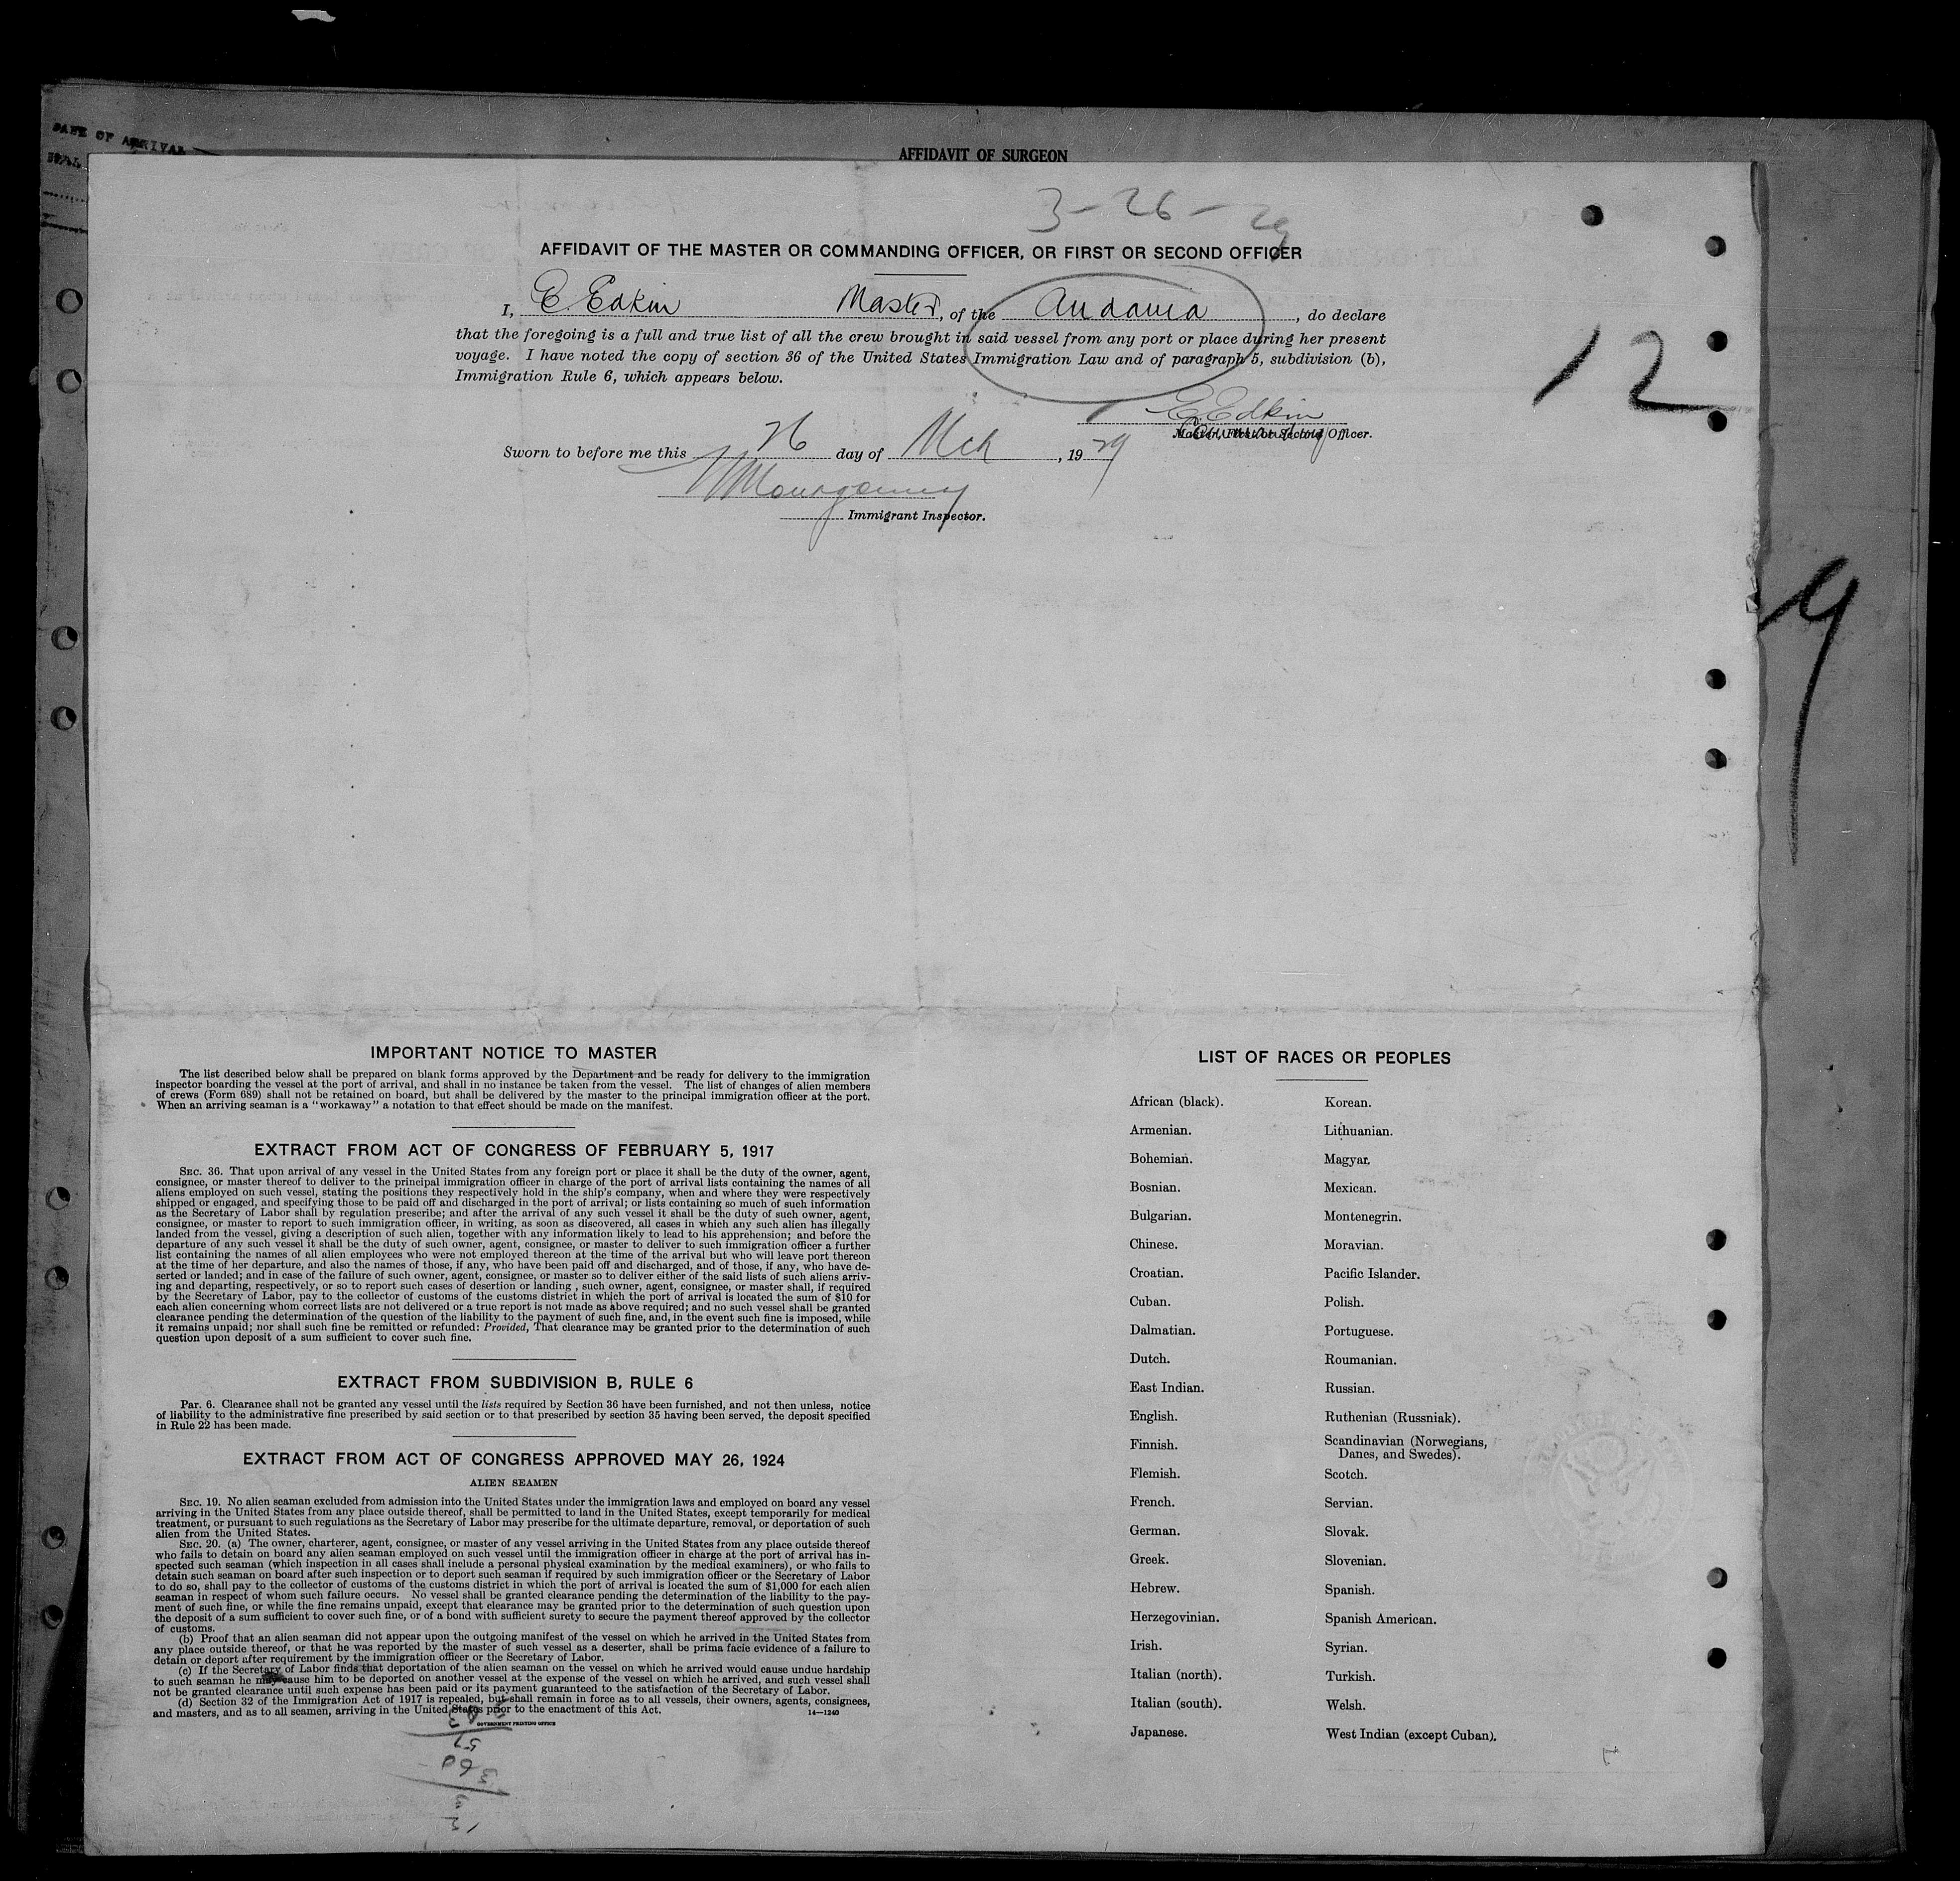 DATE OF ARRIVAL
AFFIDAVIT OF SURGEON
3-26-29
AFFIDAVIT OF THE MASTER OR COMMANDING OFFICER, OR FIRST OR SECOND OFFICER
I, E. Edkin Master, of the Andania, do declare
that the foregoing is a full and true list of all the crew brought in said vessel from any port or place during her present
voyage. I have noted the copy of section 36 of the United States Immigration Law and of paragraph 5, subdivision (b),
Immigration Rule 6, which appears below.
12
E. Edkin
Master, First or Second Officer.
Sworn to before me this 26 day of Mch, 1929
Montgomery
Immigrant Inspector.
9
IMPORTANT NOTICE TO MASTER
The list described below shall be prepared on blank forms approved by the Department and be ready for delivery to the immigration
inspector boarding the vessel at the port of arrival, and shall in no instance be taken from the vessel. The list of changes of alien members
of crews (Form 689) shall not be retained on board, but shall be delivered by the master to the principal immigration officer at the port.
When an arriving seaman is a "workaway" a notation to that effect should be made on the manifest.
EXTRACT FROM ACT OF CONGRESS OF FEBRUARY 5, 1917
SEC. 36. That upon arrival of any vessel in the United States from any foreign port or place it shall be the duty of the owner, agent,
consignee, or master thereof to deliver to the principal immigration officer in charge of the port of arrival lists containing the names of all
aliens employed on such vessel, stating the positions they respectively hold in the ship's company, when and where they were respectively
shipped or engaged, and specifying those to be paid off and discharged in the port of arrival; or lists containing so much of such information
as the Secretary of Labor shall by regulation prescribe; and after the arrival of any such vessel it shall be the duty of such owner, agent,
consignee, or master to report to such immigration officer, in writing, as soon as discovered, all cases in which any such alien has illegally
landed from the vessel, giving a description of such alien, together with any information likely to lead to his apprehension; and before the
departure of any such vessel it shall be the duty of such owner, agent, consignee, or master to deliver to such immigration officer a further
list containing the names of all alien employees who were not employed thereon at the time of the arrival but who will leave port thereon
at the time of her departure, and also the names of those, if any, who have been paid off and discharged, and of those, if any, who have de-
serted or landed; and in case of the failure of such owner, agent, consignee, or master so to deliver either of the said lists of such aliens arriv-
ing and departing, respectively, or so to report such cases of desertion or landing , such owner, agent, consignee, or master shall, if required
by the Secretary of Labor, pay to the collector of customs of the customs district in which the port of arrival is located the sum of $10 for
each alien concerning whom correct lists are not delivered or a true report is not made as above required; and no such vessel shall be granted
clearance pending the determination of the question of the liability to the payment of such fine, and, in the event such fine is imposed, while
it remains unpaid; nor shall such fine be remitted or refunded: Provided, That clearance may be granted prior to the determination of such
question upon deposit of a sum sufficient to cover such fine.
EXTRACT FROM SUBDIVISION B, RULE 6
Par. 6. Clearance shall not be granted any vessel until the lists required by Section 36 have been furnished, and not then unless, notice
of liability to the administrative fine prescribed by said section or to that prescribed by section 35 having been served, the deposit specified
in Rule 22 has been made.
EXTRACT FROM ACT OF CONGRESS APPROVED MAY 26, 1924
ALIEN SEAMEN
SEC. 19. No alien seaman excluded from admission into the United States under the immigration laws and employed on board any vessel
arriving in the United States from any place outside thereof, shall be permitted to land in the United States, except temporarily for medical
treatment, or pursuant to such regulations as the Secretary of Labor may prescribe for the ultimate departure, removal, or deportation of such
alien from the United States.
SEC. 20. (a) The owner, charterer, agent, consignee, or master of any vessel arriving in the United States from any place outside thereof
who fails to detain on board any alien seaman employed on such vessel until the immigration officer in charge at the port of arrival has in-
spected such seaman (which inspection in all cases shall include a personal physical examination by the medical examiners), or who fails to
detain such seaman on board after such inspection or to deport such seaman if required by such immigration officer or the Secretary of Labor
to do so, shall pay to the collector of customs of the customs district in which the port of arrival is located the sum of $1,000 for each alien
seaman in respect of whom such failure occurs. No vessel shall be granted clearance pending the determination of the liability to the pay-
ment of such fine, or while the fine remains unpaid, except that clearance may be granted prior to the determination of such question upon
the deposit of a sum sufficient to cover such fine, or of a bond with sufficient surety to secure the payment thereof approved by the collector
of customs.
(b) Proof that an alien seaman did not appear upon the outgoing manifest of the vessel on which he arrived in the United States from
any place outside thereof, or that he was reported by the master of such vessel as a deserter, shall be prima facie evidence of a failure to
detain or deport after requirement by the immigration officer or the Secretary of Labor.
(c) If the Secretary of Labor finds that deportation of the alien seaman on the vessel on which he arrived would cause undue hardship
to such seaman he may cause him to be deported on another vessel at the expense of the vessel on which he arrived, and such vessel shall
not be granted clearance until such expense has been paid or its payment guaranteed to the satisfaction of the Secretary of Labor.
(d) Section 32 of the Immigration Act of 1917 is repealed, but shall remain in force as to all vessels, their owners, agents, consignees,
and masters, and as to all seamen, arriving in the United States prior to the enactment of this Act.
14—1240
GOVERNMENT PRINTING OFFICE
LIST OF RACES OR PEOPLES
African (black). Korean.
Armenian. Lithuanian.
Bohemian. Magyar.
Bosnian. Mexican.
Bulgarian. Montenegrin.
Chinese. Moravian.
Croatian. Pacific Islander.
Cuban. Polish.
Dalmatian. Portuguese.
Dutch. Roumanian.
East Indian. Russian.
English. Ruthenian (Russniak).
Finnish. Scandinavian (Norwegians,
Danes, and Swedes).
Flemish. Scotch.
French. Servian.
German. Slovak.
Greek. Slovenian.
Hebrew. Spanish.
Herzegovinian. Spanish American.
Irish. Syrian.
Italian (north). Turkish.
Italian (south). Welsh.
Japanese. West Indian (except Cuban).